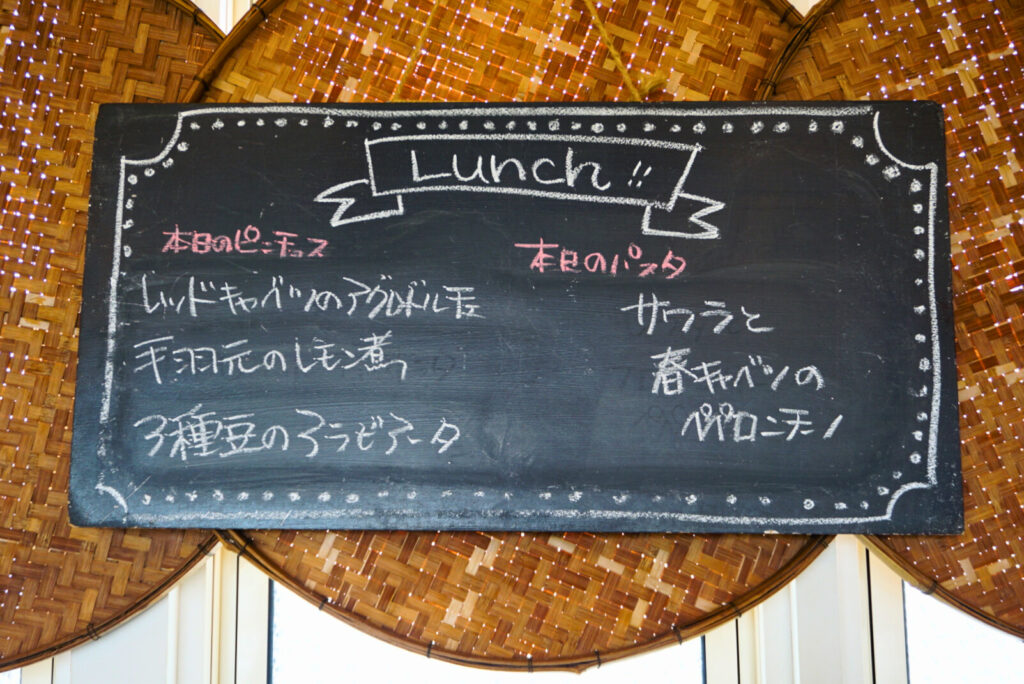 Lunch!!
本日のピンチョス
レッドキャベツのアグロドルチェ
手羽元のレモン煮
3種豆のアラビアータ
本日のパスタ
サワラと
春キャベツの
ペペロンチーノ